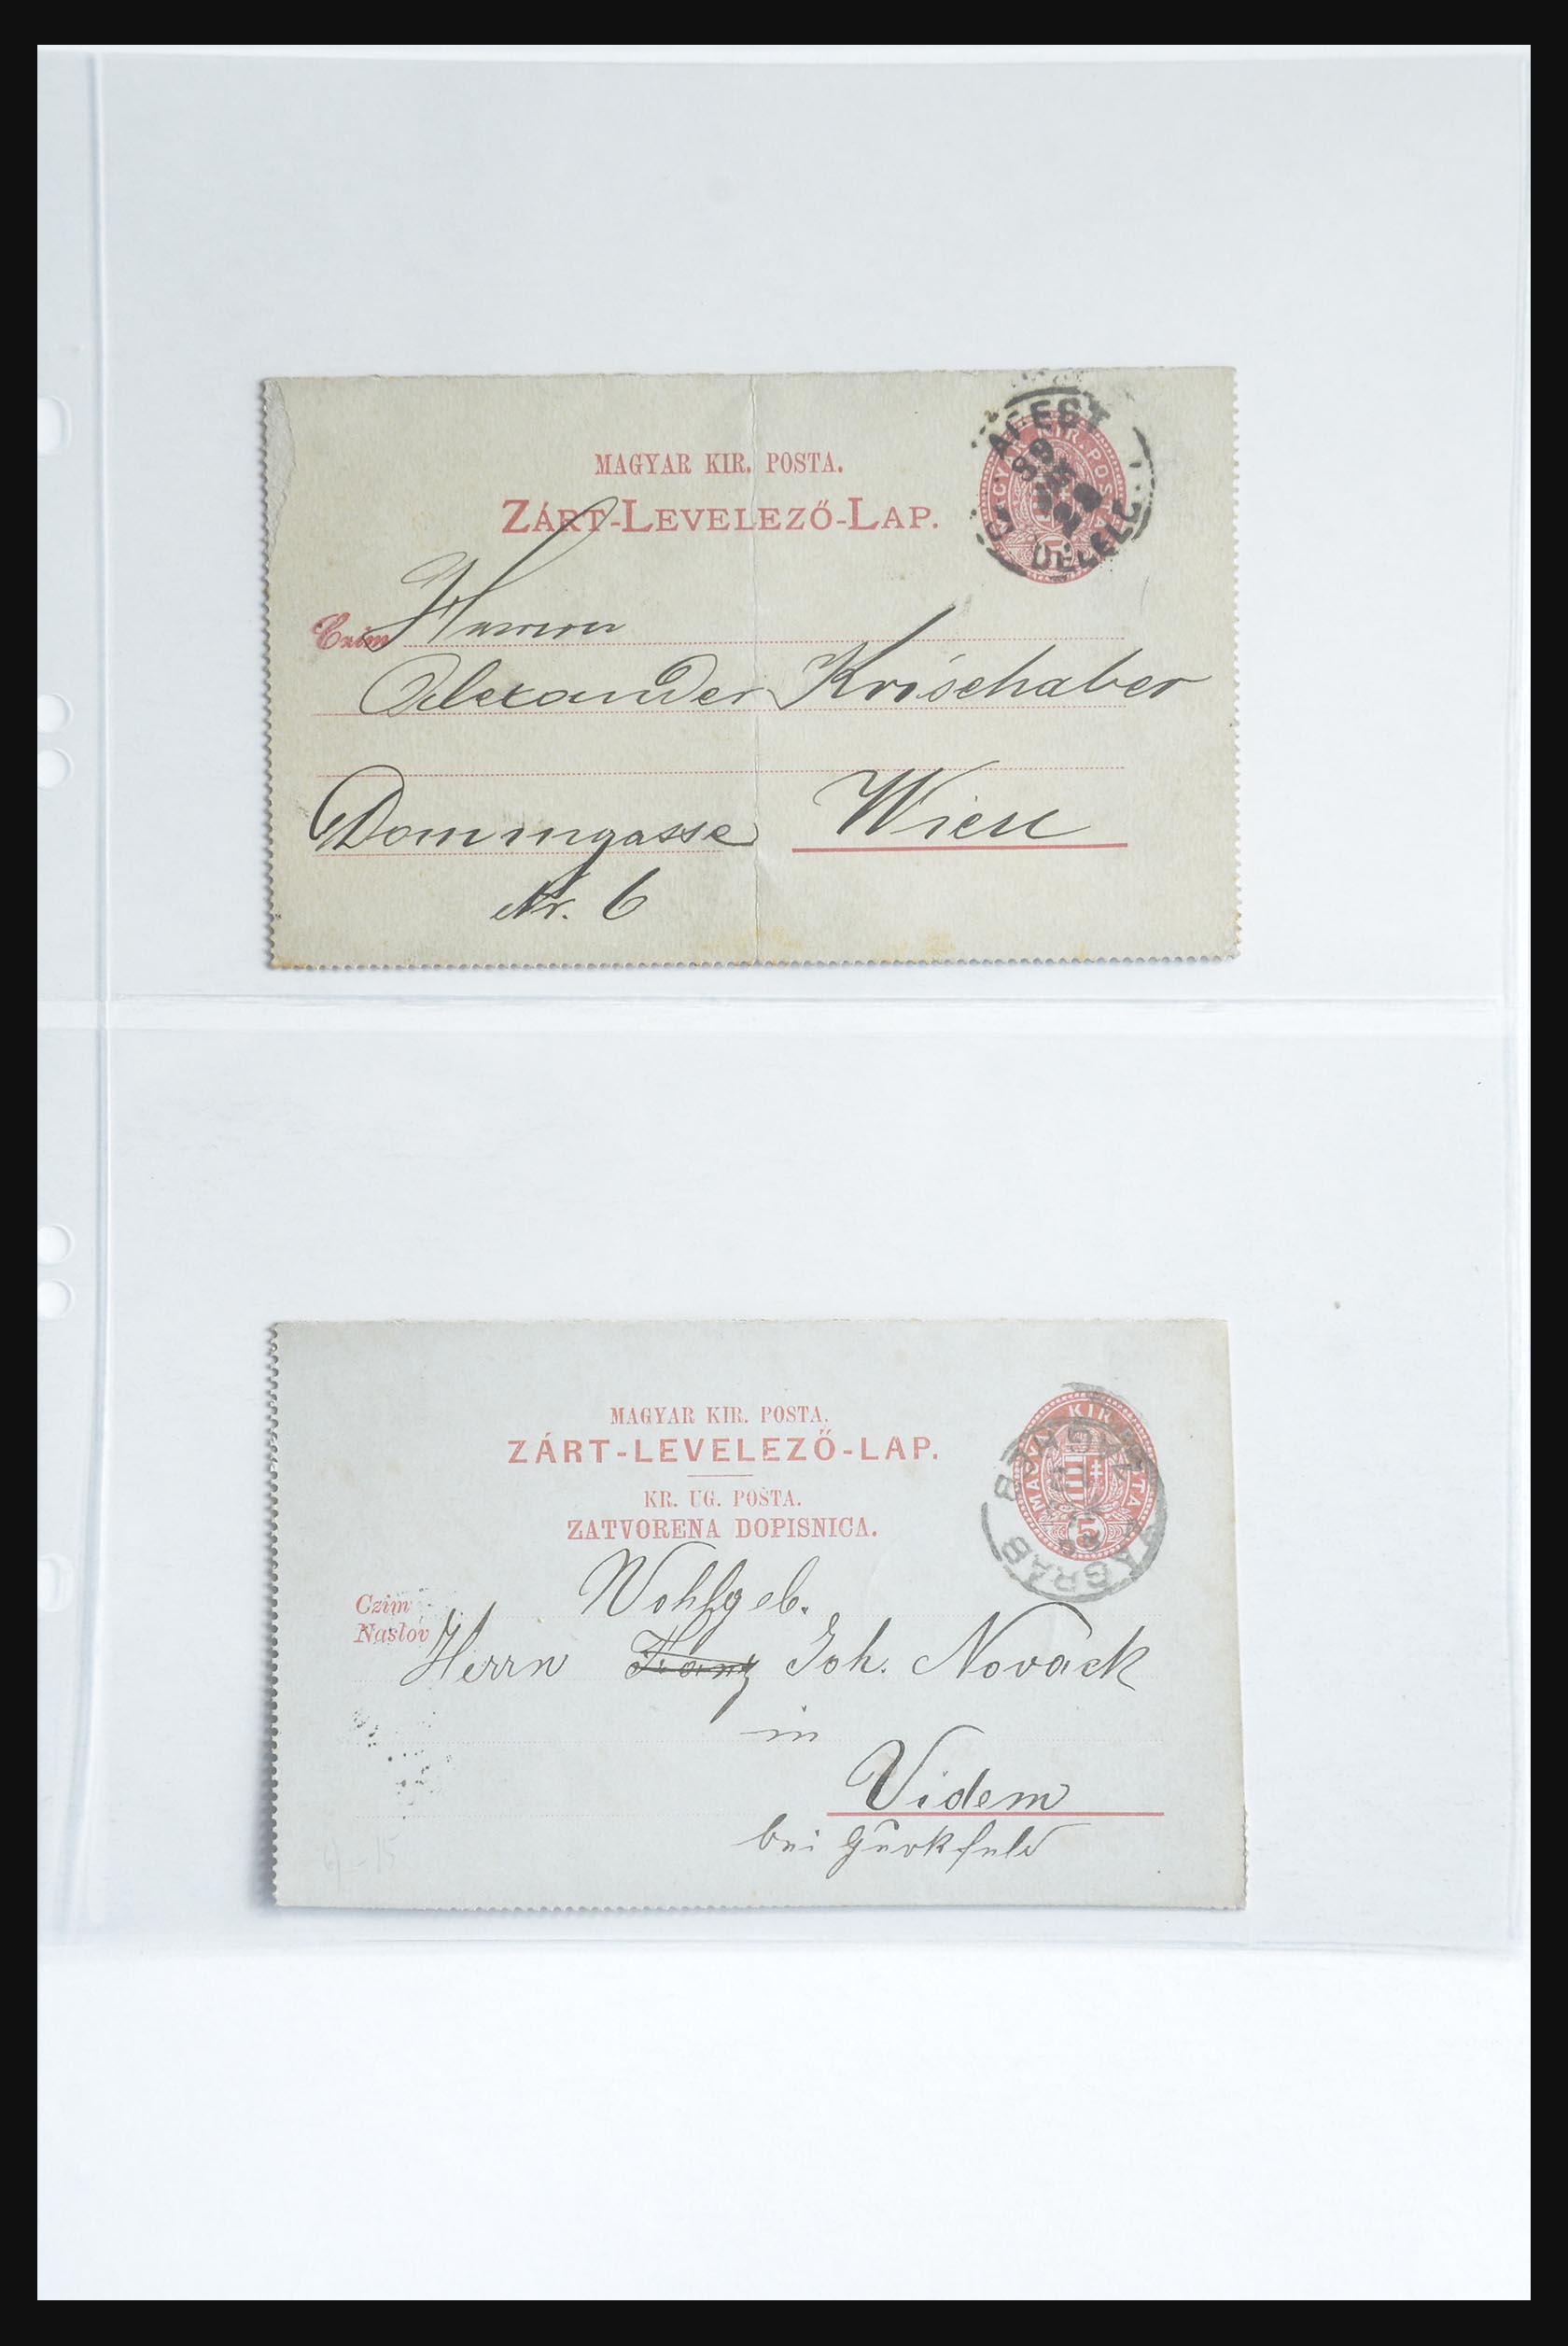 MAGYAR KIR. POSTA.
ZÁRT-LEVELEZŐ-LAP.
MAGYAR KIR. POSTA
5
89
Czim
Herrn
Alexander Krischaber
Dommgasse Wien
Nr. 6
MAGYAR KIR. POSTA.
ZÁRT-LEVELEZŐ-LAP.
KR. UG. POŠTA.
ZATVORENA DOPISNICA.
MAGYAR KIR. POSTA
5
ZÁGRÁB
Czim
Naslov
Wohlgeb.
Herrn Franz Joh. Novack
in
Videm
bei Gurkfeld